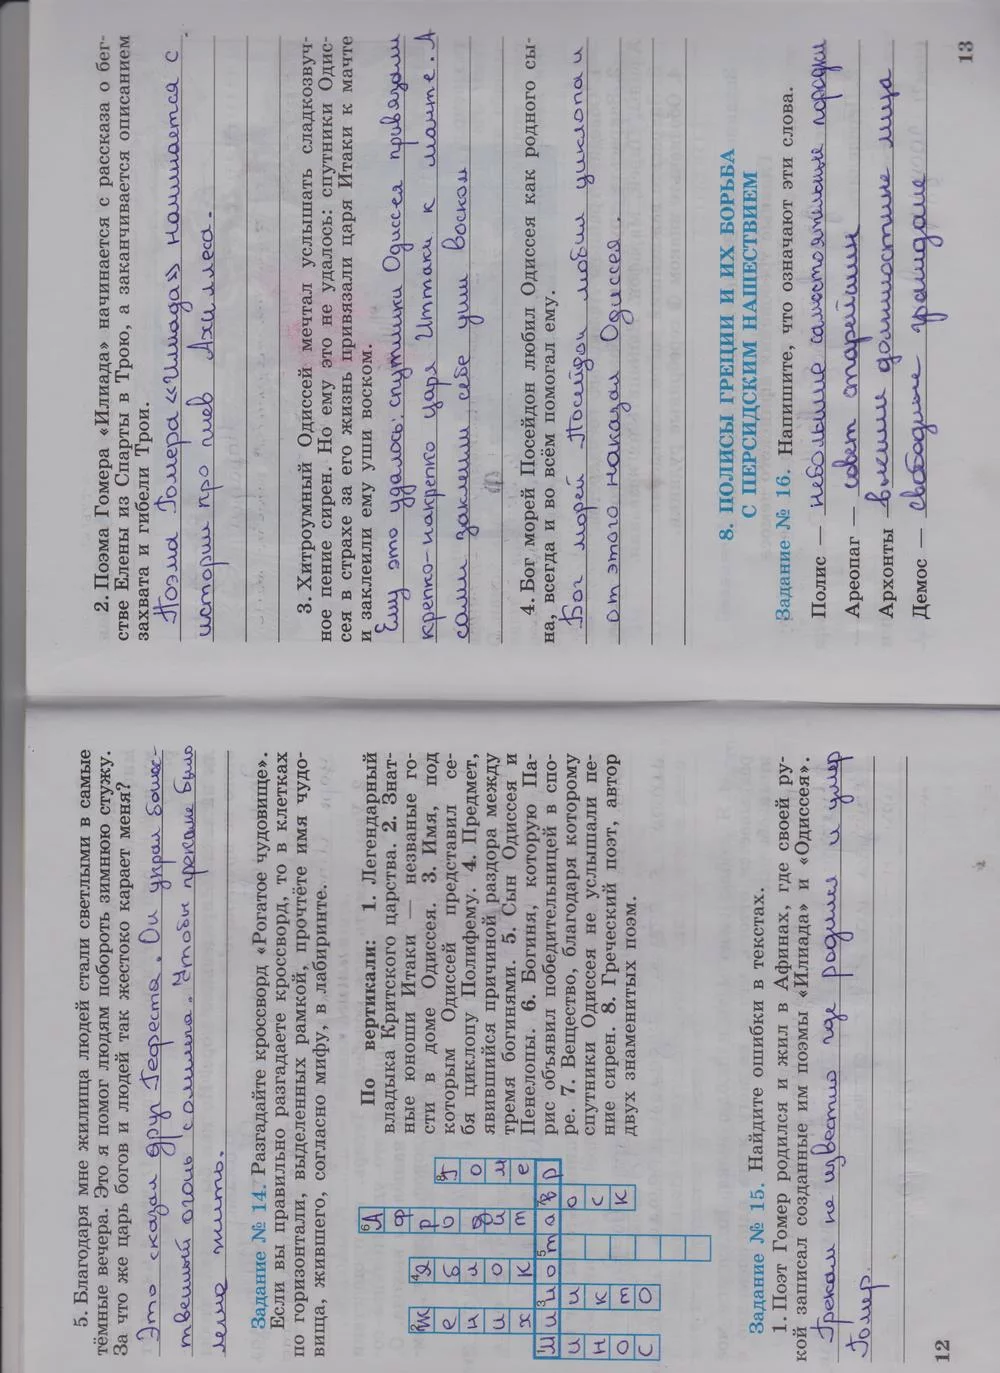 5. Благодаря мне жилища людей стали светлыми в самые
тёмные вечера. Это я помог людям побороть зимнюю стужу.
За что же царь богов и людей так жестоко карает меня?
Это сказал друг Гефеста. Он украл божес-
твенный огонь с олимпа. Чтобы
легче жить.
Задание № 14. Разгадайте кроссворд «Рогатое чудовище».
Если вы правильно разгадаете кроссворд, то в клетках
по горизонтали, выделенных рамкой, прочтёте имя чудо-
вища, жившего, согласно мифу, в лабиринте.
По вертикали: 1. Легендарный
владыка Критского царства. 2. Знат-
ные юноши Итаки — незваные го-
сти в доме Одиссея. 3. Имя, под
которым Одиссей представил се-
бя циклопу Полифему. 4. Предмет,
явившийся причиной раздора между
тремя богинями. 5. Сын Одиссея и
Пенелопы. 6. Богиня, которую Па-
рис объявил победительницей в спо-
ре. 7. Вещество, благодаря которому
спутники Одиссея не услышали пе-
ние сирен. 8. Греческий поэт, автор
двух знаменитых поэм.
Задание № 15. Найдите ошибки в текстах.
1. Поэт Гомер родился и жил в Афинах, где своей ру-
кой записал созданные им поэмы «Илиада» и «Одиссея».
Грекам не известно где родился и умер
Гомер.
12
2. Поэма Гомера «Илиада» начинается с рассказа о бег-
стве Елены из Спарты в Трою, а заканчивается описанием
захвата и гибели Трои.
Поэма Гомера «Илиада» начинается с
истории про гнев Ахиллеса.
3. Хитроумный Одиссей мечтал услышать сладкозвуч-
ное пение сирен. Но ему это не удалось: спутники Одис-
сея в страхе за его жизнь привязали царя Итаки к мачте
и заклеили ему уши воском.
Ему это удалось: спутники Одиссея привязали
крепко-накрепко царя Иттаки к мачте. А
сами заклеили себе уши воском
4. Бог морей Посейдон любил Одиссея как родного сы-
на, всегда и во всём помогал ему.
Бог морей Посейдон любил циклопа и
от этого наказал Одиссея.
8. ПОЛИСЫ ГРЕЦИИ И ИХ БОРЬБА
С ПЕРСИДСКИМ НАШЕСТВИЕМ
Задание № 16. Напишите, что означают эти слова.
Полис — небольшие самостоятельные
Ареопаг — совет старейшин
Архонты высшие должностные лица
Демос — свободные граждане
13